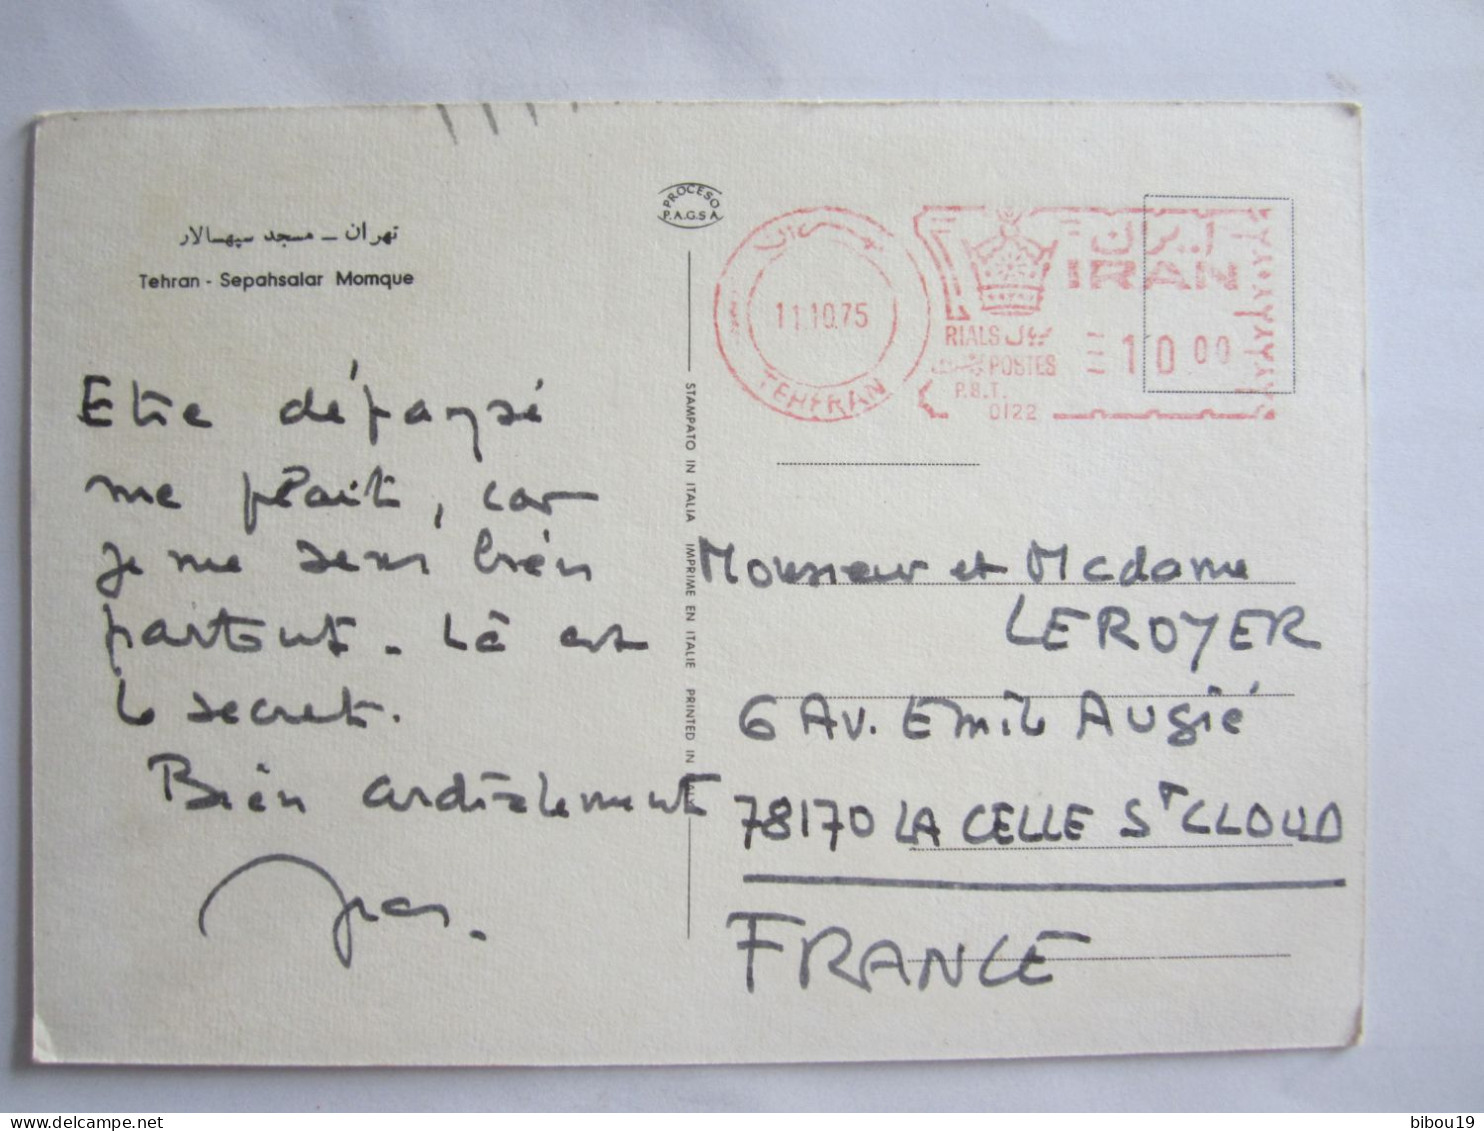 تهران – مسجد سپهسالار
Tehran - Sepahsalar Momque
Etre dépaysé
me plait, car
je me sens bien
partout. Là est
le secret.
Bien cordialement
PROCESO
P.A.G.S.A.
STAMPATO IN ITALIA IMPRIME EN ITALIE PRINTED IN ITALY
11.10.75
TEHERAN
ایران
IRAN
RIALS ریال
POSTES
P.B.T.
0122
10 00
Monsieur et Madame
LEROYER
6 Av. Emile Augié
78170 LA CELLE ST CLOUD
FRANCE
bibou19
delcampe.net